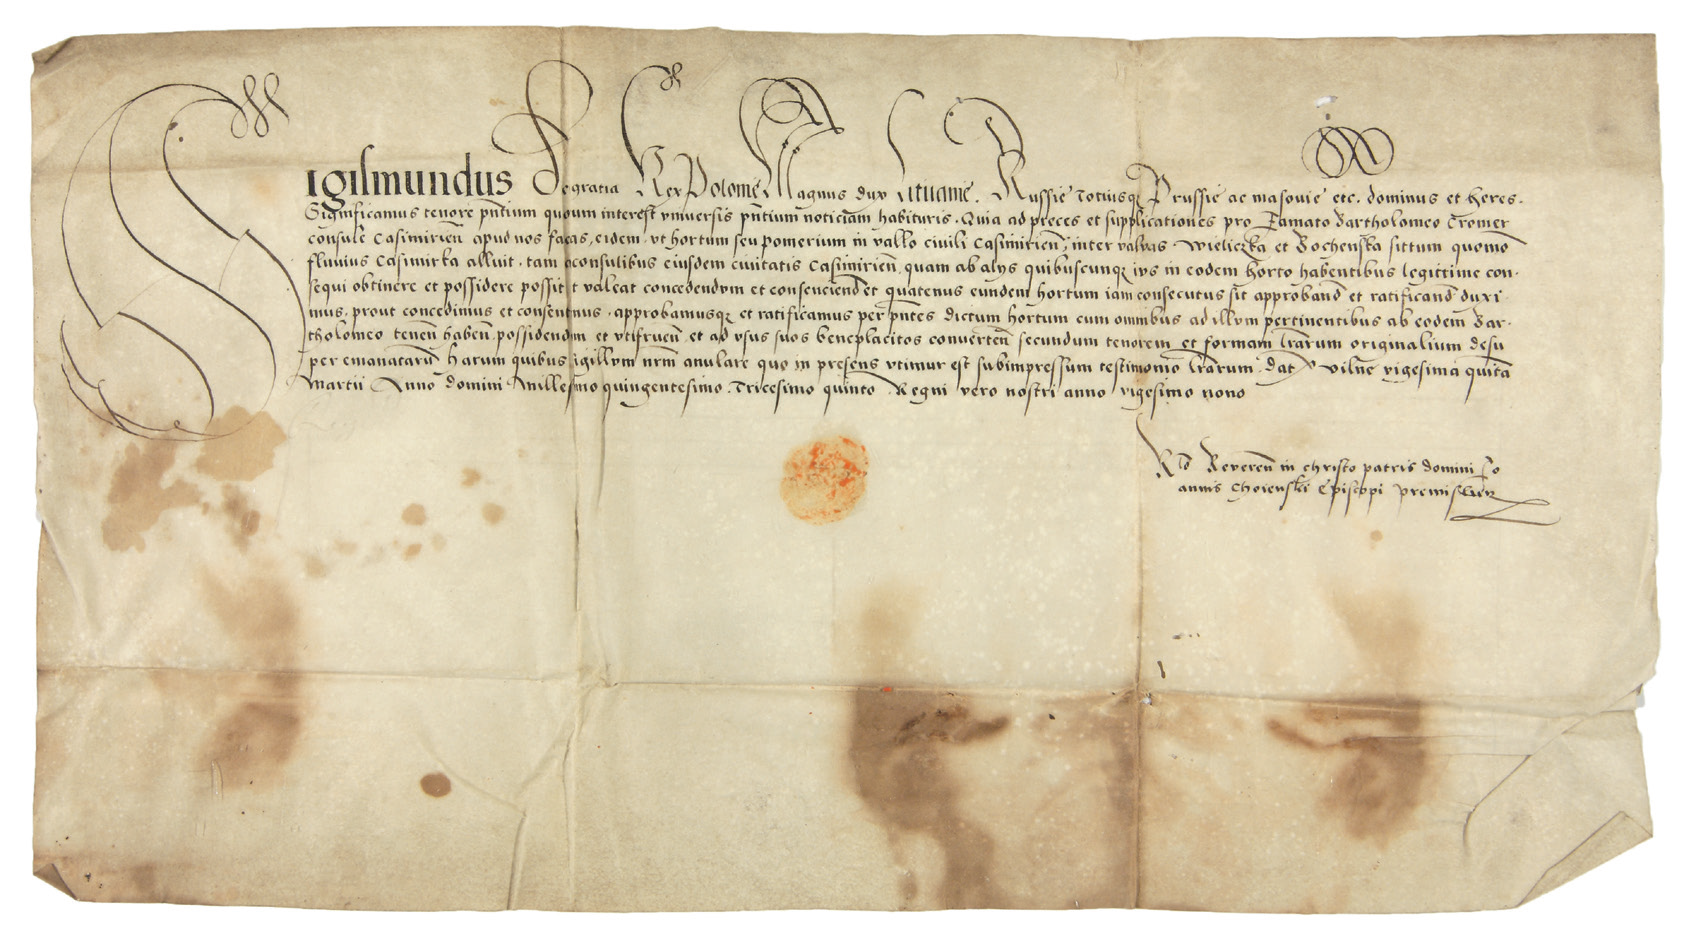 Sigismundus Dei gratia Rex Polonie Magnus dux Lituanie. Russie Totiusq Prussie ac masovie etc. dominus et heres.
Significamus tenore pñtium quorum interest vniversis pñtium noticiam habituris. Quia ad preces et supplicationes pro Famato Bartholomeo Cromer
consule Casimirień apud nos factas, eidem vt hortum seu pomerium in vallo civili Casimirień, inter valvas Wieliczka et Bochenska sittum quomō
fluvius Casimirka alluit. tam proconsulibus eiusdem civitatis Casimirień, quam ab alys quibuscunq ivs in eodem horto habentibus legittime con-
sequi obtinere et possidere possit et valeat concedendvm et consenciend et quatenus eundem hortum iam consecutus sit approband et ratificand duxi-
mus. prout concedimus et consentimus. approbamusq et ratificamus per pñtes dictum hortum cum omnibus ad illvm pertinentibus ab eodem Bar-
tholomeo teneñ habeñ. possidendvm et vtifrueñ et ad vsus suos beneplacitos converteñ secundum tenorem et formam lrarum originalium desu
per emanatarum Harum quibus sigillvm nrm anulare quo in presens vtimur est subimpressum testimonio lrarum. dat Vilne vigesima quita
Martii Anno domini Millesimo quingentesimo Tricesimo quinto Regni vero nostri anno vigesimo nono
Rlō Revereñ in christo patris domini Jo
annis Choienski Episcopi premislień